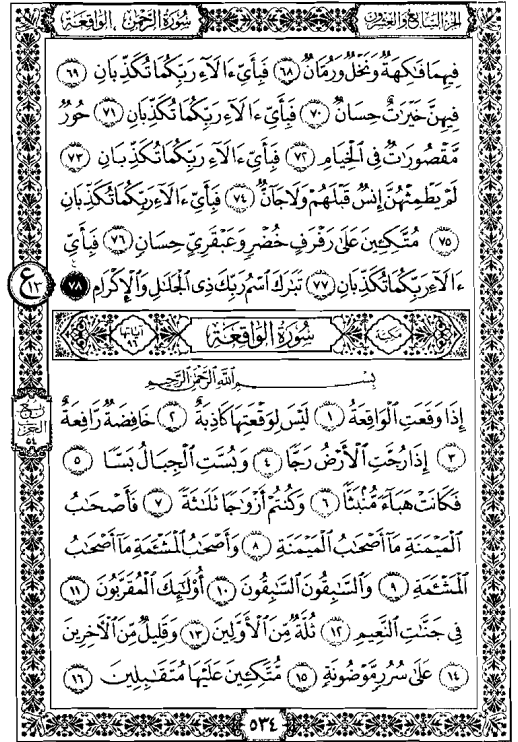 الجزء السابع والعشرون
سُورَةُ الرَّحْمٰن الوَاقِعَة
فِيهِمَا فَاكِهَةٌ وَنَخْلٌ وَرُمَّانٌ ۝٦٨ فَبِأَيِّ ءَالَآءِ رَبِّكُمَا تُكَذِّبَانِ ۝٦٩
فِيهِنَّ خَيْرَاتٌ حِسَانٌ ۝٧٠ فَبِأَيِّ ءَالَآءِ رَبِّكُمَا تُكَذِّبَانِ ۝٧١ حُورٌ
مَّقْصُورَاتٌ فِي الْخِيَامِ ۝٧٢ فَبِأَيِّ ءَالَآءِ رَبِّكُمَا تُكَذِّبَانِ ۝٧٣
لَمْ يَطْمِثْهُنَّ إِنسٌ قَبْلَهُمْ وَلَا جَآنٌّ ۝٧٤ فَبِأَيِّ ءَالَآءِ رَبِّكُمَا تُكَذِّبَانِ
۝٧٥ مُتَّكِـِٔينَ عَلَىٰ رَفْرَفٍ خُضْرٍ وَعَبْقَرِيٍّ حِسَانٍ ۝٧٦ فَبِأَيِّ
ءَالَآءِ رَبِّكُمَا تُكَذِّبَانِ ۝٧٧ تَبَٰرَكَ ٱسْمُ رَبِّكَ ذِي ٱلْجَلَٰلِ وَٱلْإِكْرَامِ ۝٧٨
ع ١٣
مَكِّيَّة
سُورَةُ الوَاقِعَة
آيَاتُهَا ٩٦
بِسْمِ ٱللَّهِ ٱلرَّحْمَٰنِ ٱلرَّحِيمِ
إِذَا وَقَعَتِ ٱلْوَاقِعَةُ ۝١ لَيْسَ لِوَقْعَتِهَا كَاذِبَةٌ ۝٢ خَافِضَةٌ رَّافِعَةٌ
ربع الحزب ٥٤
۝٣ إِذَا رُجَّتِ ٱلْأَرْضُ رَجًّا ۝٤ وَبُسَّتِ ٱلْجِبَالُ بَسًّا ۝٥
فَكَانَتْ هَبَآءً مُّنۢبَثًّا ۝٦ وَكُنتُمْ أَزْوَٰجًا ثَلَٰثَةً ۝٧ فَأَصْحَٰبُ
ٱلْمَيْمَنَةِ مَآ أَصْحَٰبُ ٱلْمَيْمَنَةِ ۝٨ وَأَصْحَٰبُ ٱلْمَشْـَٔمَةِ مَآ أَصْحَٰبُ
ٱلْمَشْـَٔمَةِ ۝٩ وَٱلسَّٰبِقُونَ ٱلسَّٰبِقُونَ ۝١٠ أُو۟لَٰٓئِكَ ٱلْمُقَرَّبُونَ ۝١١
فِي جَنَّٰتِ ٱلنَّعِيمِ ۝١٢ ثُلَّةٌ مِّنَ ٱلْأَوَّلِينَ ۝١٣ وَقَلِيلٌ مِّنَ ٱلْءَاخِرِينَ
۝١٤ عَلَىٰ سُرُرٍ مَّوْضُونَةٍ ۝١٥ مُّتَّكِـِٔينَ عَلَيْهَا مُتَقَٰبِلِينَ ۝١٦
٥٣٤